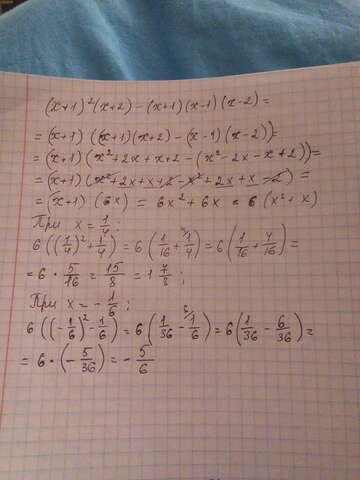 (x+1)²(x+2)-(x+1)(x-1)(x-2)=
=(x+1)((x+1)(x+2)-(x-1)(x-2))=
=(x+1)(x²+2x+x+2-(x²-2x-x+2))=
=(x+1)(x²+2x+x+2-x²+2x+x-2)=
=(x+1)(6x)=6x²+6x=6(x²+x)
При x=1/4:
6((1/4)²+1/4)=6(1/16+1/4)=6(1/16+4/16)=
=6·5/16=15/8=1 7/8;
При x=-1/6:
6((-1/6)²-1/6)=6(1/36-1/6)=6(1/36-6/36)=
=6·(-5/36)=-5/6